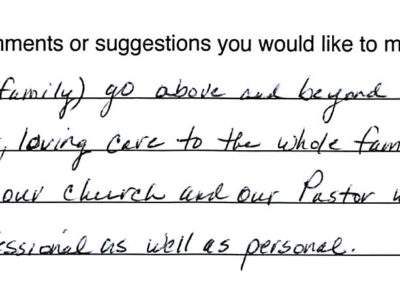 nments or suggestions you would like to m
family) go above and beyond
, loving care to the whole fam
our church and our Pastor w
essional as well as personal.